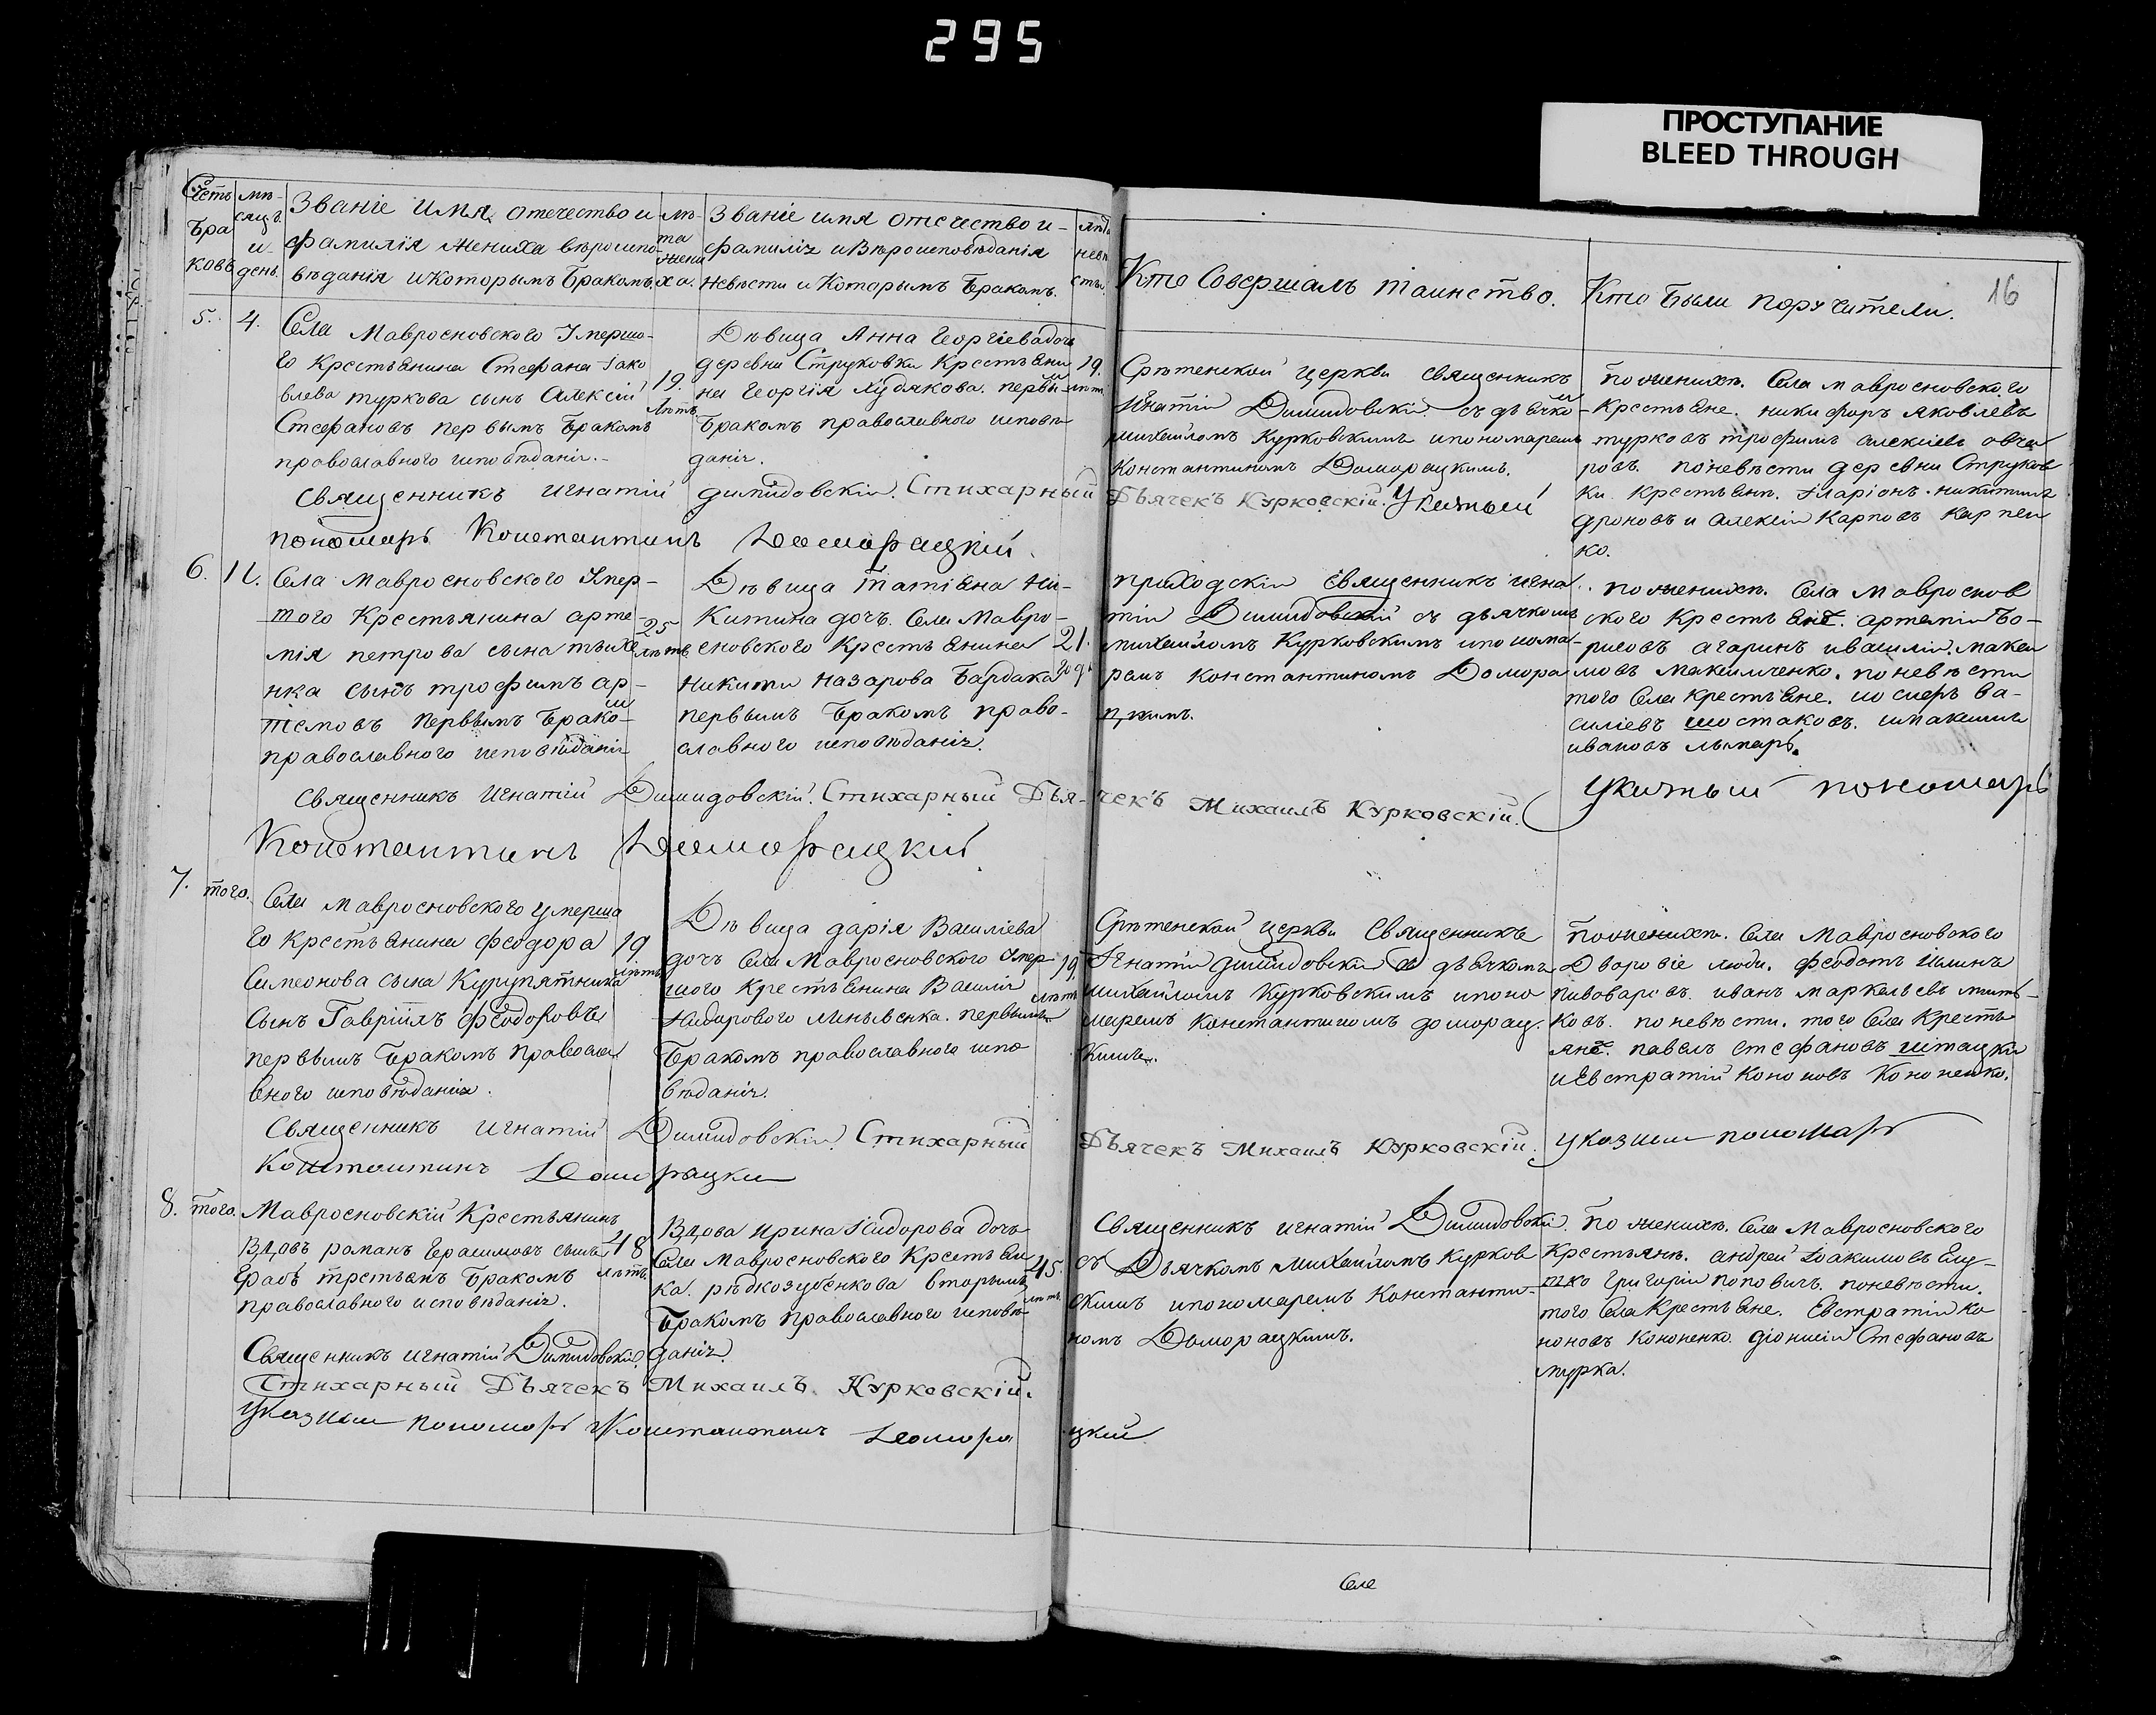 295
ПРОСТУПАНИЕ
BLEED THROUGH
16
Счетъ браковъ
мѣсяцъ и день.
Званіе имя отечество и
фамилія жениха вѣроиспо-
вѣданія и которымъ бракомъ.
лѣта жениха.
Званіе имя отечество и
фамилія и вѣроисповѣданія
невѣсты и которымъ бракомъ.
лѣта невѣсты.
Кто совершалъ таинство.
Кто были поручители.
5. 4.
Села Мавросновского Умерша-
го Крестьянина Стефана Іако
влева туркова сынъ Алексій
Стефановъ первымъ бракомъ
православного исповѣданія.
19. лѣтъ.
Дѣвица Анна Георгіева дочь
деревни Струковки Крестьяни
на Георгія Худякова. первы
бракомъ православного исповѣ
даніч.
19. лѣтъ
Срѣтенской церкви священникъ
Игнатій Димидовскій съ дьячко
михаиломъ Курковскимъ и пономаремъ
Константиномъ Доморацкимъ.
По женихѣ. Села мавросновского
Крестьяне. никифоръ яковлевъ
турковъ трофимъ алексіевъ овча
ровъ. по невѣсти деревни Струков
ки крестьянѣ. Іларіонъ никитинъ
дроновъ и Алексій Карповъ Карпен
ко.
Священникъ Игнатій Димидовскій. Стихарный Дьячекъ Курковскій. Указный
пономарь Константинъ Доморацкій.
6. 11.
Села Мавросновского Умер-
шого Крестьянина арте-
мія петрова сына тыхе
нка сынъ трофимъ ар-
темовъ первымъ брако-
православного исповѣданія
25 лѣтъ
Дѣвица Татіана Ни-
китина дочь. Села Мавро-
сновского Крестьянина
Никиты Назарова Бардака
первымъ бракомъ право-
славного исповѣданіч.
21. годъ
приходскій священникъ игна
тій Димидовскій съ дьячкомъ
михаиломъ Курковскимъ и понома-
ремъ Константиномъ Домора
цкимъ.
По женихѣ. Села Мавроснов
ского Крестьяне. артемій Бо-
рисовъ агаринъ и василій макси
мовъ Максимченко. по невѣсти
того Села Крестьяне. иосифъ Ва-
силіевъ шостаковъ. и
ивановъ лымарь.
Священникъ Игнатій Димидовскій. Стихарный Дьячекъ Михаилъ Курковскій. Указный пономарь
Константинъ Доморацкий
7. того.
Села Мавросновского умерша
го Крестьянина феодора
Симеонова сына Курупятника
сынъ Гавріилъ феодоровъ
первымъ бракомъ правосла
вного исповѣданія.
19 лѣтъ
Дѣвица дарія Василіева
дочь Села Мавросновского Умер
шого Крестьянина Василія
первымъ
бракомъ православного испо
вѣданіч.
19. лѣтъ
Срѣтенской церкви Священникъ
Игнатій Димидовскій съ дьячкомъ
михаиломъ Курковскимъ и поно
маремъ Константиномъ доморац.
кимъ.
По женихѣ. Села Мавросновского
Дворовіе люди. феодотъ Илинъ
пивоваровъ. иванъ маркелъевъ
ковъ. по невѣсти. того Села Кресть
яне. павелъ стефановъ
и Евстратій Кононовъ Кононенко.
Священникъ Игнатій Димидовскій. Стихарный Дьячекъ Михаилъ Курковскій. указный пономарь
Константинъ Доморацки
8. того.
Мавросновскій Крестьянинъ
вдовъ романъ Герасимовъ сынъ
Грабъ третьемъ бракомъ
православного исповѣданіч.
48 лѣтъ.
Вдова Ирина Сидорова дочь
Села Мавросновского Крестьяни
ка. рѣдкозубенкова вторымъ
бракомъ православного исповѣ-
даніч.
45. лѣтъ
Священникъ игнатій Димидовскій.
съ Дьячкомъ михаиломъ Курков
скимъ и пономаремъ Константи-
номъ Доморацкимъ.
по женихѣ. Села Мавросновского
Крестьянѣ. андрей Іоакимовъ
Григорій поповичъ. по невѣсти.
того Села Крестьяне. Евстратій Ко
ноновъ Кононенко. діонисій Стефановъ
мурка.
Священникъ игнатій Димидовскій
Стихарный Дьячекъ Михаилъ. Курковскій.
Указный пономарь Константинъ Доморацкий
Селе